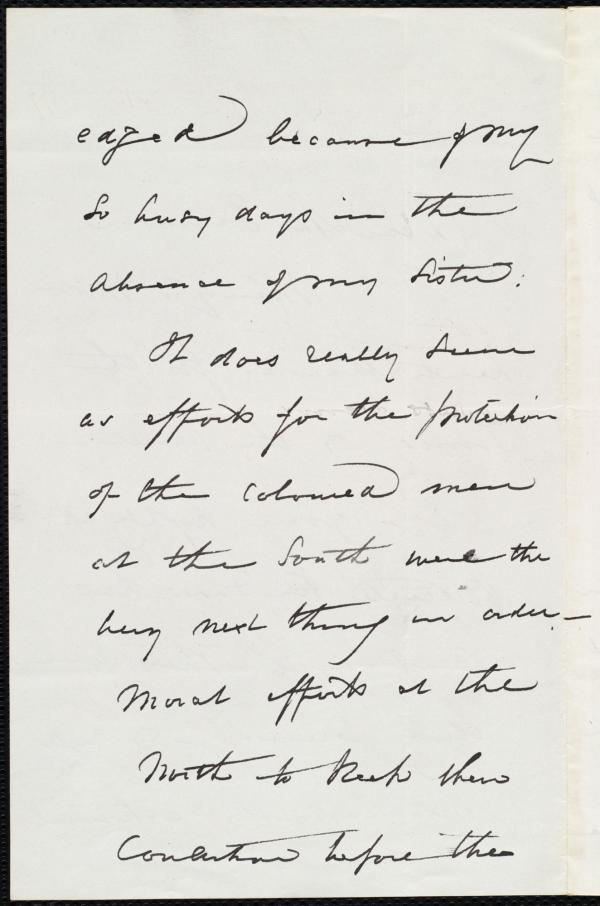 edged because of my
so busy days in the
absence of my sister.
It does really seem
as efforts for the protection
of the colored men
at the South were the
very next thing in order—
Moral efforts at the
North to keep their
before the